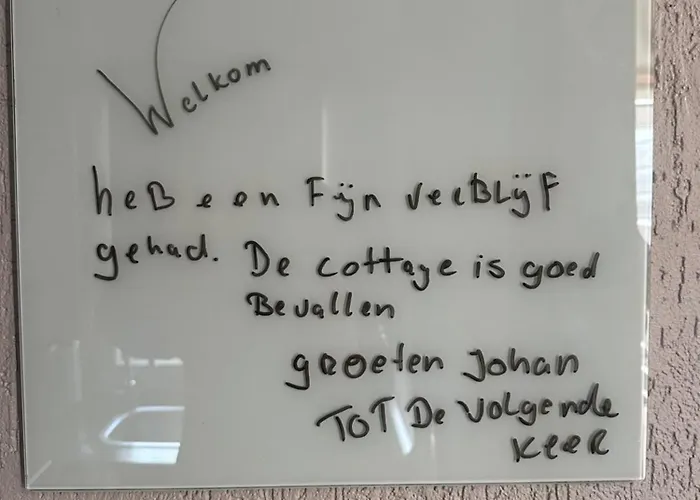 Welkom
heB een Fijn verBLijF
gehad. De cottage is goed
Bevallen
groeten Johan
TOT De Volgende
KeeR